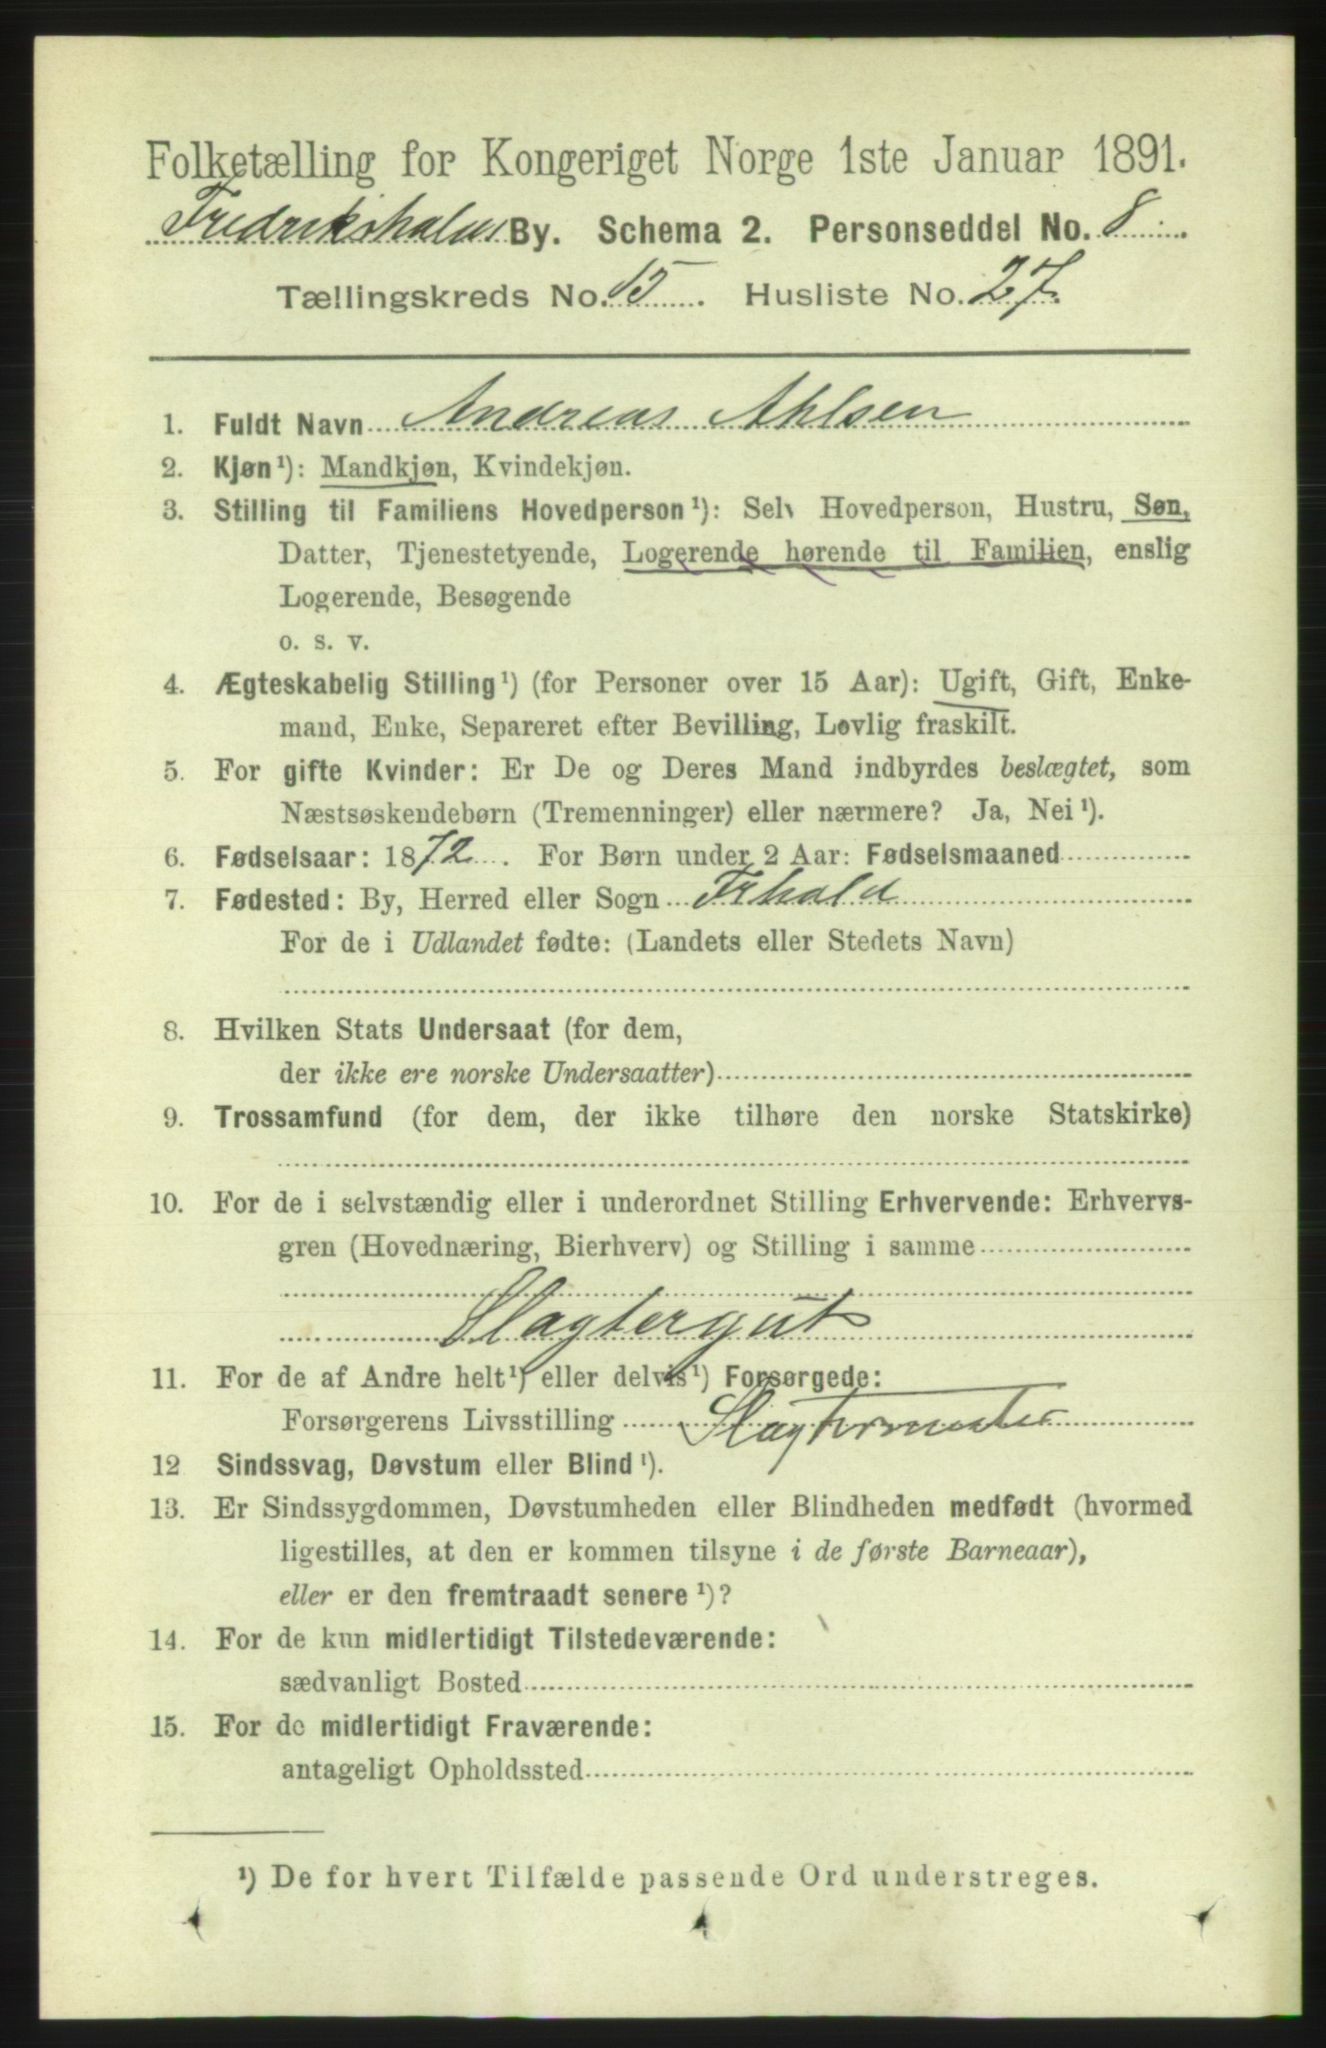 Folketælling for Kongeriget Norge 1ste Januar 1891.
Fredrikshalds By. Schema 2. Personseddel No. 8
Tællingskreds No. 15. Husliste No. 27.
1. Fuldt Navn Andreas Ahlsen
2. Kjøn¹): Mandkjøn, Kvindekjøn.
3. Stilling til Familiens Hovedperson¹): Selv Hovedperson, Hustru, Søn,
Datter, Tjenestetyende, Logerende hørende til Familien, enslig
Logerende, Besøgende
o. s. v.
4. Ægteskabelig Stilling¹) (for Personer over 15 Aar): Ugift, Gift, Enke-
mand, Enke, Separeret efter Bevilling, Lovlig fraskilt.
5. For gifte Kvinder: Er De og Deres Mand indbyrdes beslægtet, som
Næstsøskendebørn (Tremenninger) eller nærmere? Ja, Nei¹).
6. Fødselsaar: 1872. For Børn under 2 Aar: Fødselsmaaned
7. Fødested: By, Herred eller Sogn Frhald
For de i Udlandet fødte: (Landets eller Stedets Navn)
8. Hvilken Stats Undersaat (for dem,
der ikke ere norske Undersaatter)
9. Trossamfund (for dem, der ikke tilhøre den norske Statskirke)
10. For de i selvstændig eller i underordnet Stilling Erhvervende: Erhvervs-
gren (Hovednæring, Bierhverv) og Stilling i samme
Slagtergut
11. For de af Andre helt¹) eller delvis¹) Forsørgede:
Forsørgerens Livsstilling Slagtermester
12 Sindssvag, Døvstum eller Blind¹).
13. Er Sindssygdommen, Døvstumheden eller Blindheden medfødt (hvormed
ligestilles, at den er kommen tilsyne i de første Barneaar),
eller er den fremtraadt senere¹)?
14. For de kun midlertidigt Tilstedeværende:
sædvanligt Bosted
15. For de midlertidigt Fraværende:
antageligt Opholdssted
¹) De for hvert Tilfælde passende Ord understreges.